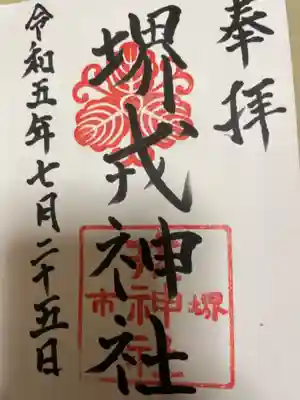 奉拝
堺戎神社
堺
市神社
令和五年七月二十五日